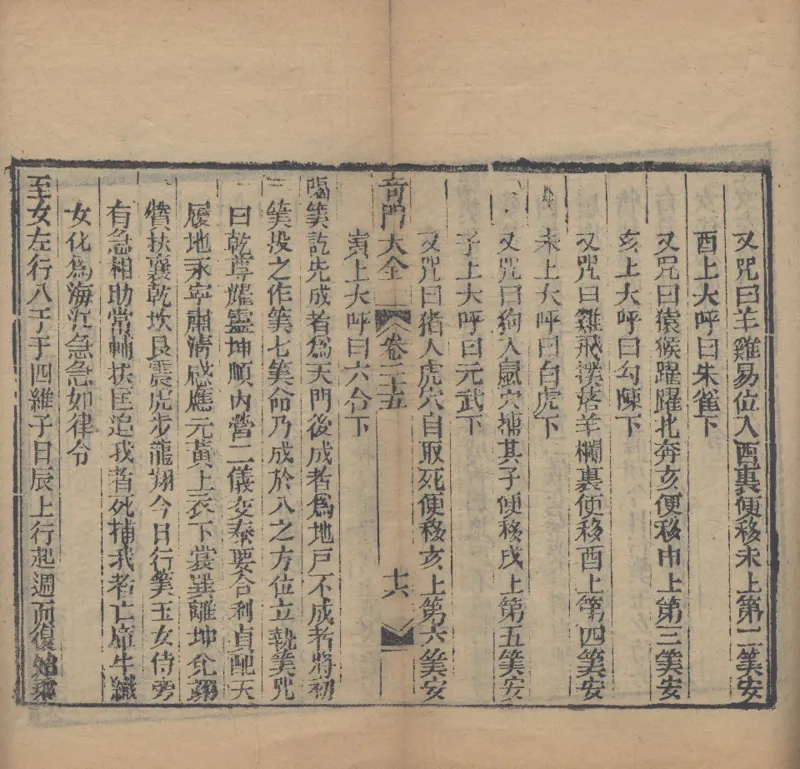 又咒曰羊雞易位入酉裏便移未上第二筭安
酉上大呼曰朱雀下
又咒曰猿猴躍躍北奔亥便移申上第三筭安
亥上大呼曰勾陳下
又咒曰雞飛撲落羊欄裏便移酉上第四筭安
未上大呼曰白虎下
又咒曰狗入鼠穴捕其子便移戌上第五筭安
子上大呼曰元武下
又咒曰猪入虎穴自取死便移亥上第六筭安
寅上大呼曰六合下
奇門大全 卷二十五 十六
筭訖先成者爲天門後成者爲地戸不成者將初
一筭投之作筭七筭命乃成於八之方位立執筭咒
曰乾尊燿靈坤順内營二儀交泰要合利貞配天
履地永寧肅清感應元黃上衣下裳巽離坤兊翊
贊扶襄乾坎艮震虎步龍翔今日行筭玉女侍旁
有急相助常輔扶匡追我者死捕我者亡牽牛織
女化爲海江急急如律令
至女左行八丁于四維子日辰上行起週而復始乘